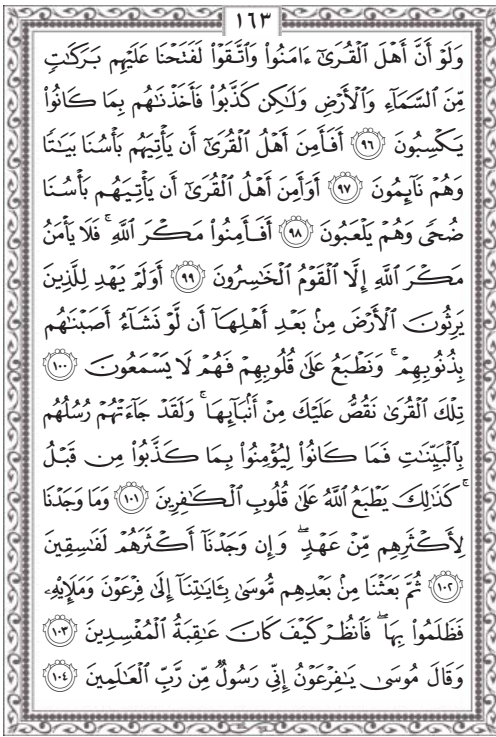 ١٦٣
وَلَوْ أَنَّ أَهْلَ ٱلْقُرَىٰٓ ءَامَنُوا۟ وَٱتَّقَوْا۟ لَفَتَحْنَا عَلَيْهِم بَرَكَٰتٍ
مِّنَ ٱلسَّمَآءِ وَٱلْأَرْضِ وَلَٰكِن كَذَّبُوا۟ فَأَخَذْنَٰهُم بِمَا كَانُوا۟
يَكْسِبُونَ ٩٦ أَفَأَمِنَ أَهْلُ ٱلْقُرَىٰٓ أَن يَأْتِيَهُم بَأْسُنَا بَيَٰتًا
وَهُمْ نَآئِمُونَ ٩٧ أَوَأَمِنَ أَهْلُ ٱلْقُرَىٰٓ أَن يَأْتِيَهُم بَأْسُنَا
ضُحًى وَهُمْ يَلْعَبُونَ ٩٨ أَفَأَمِنُوا۟ مَكْرَ ٱللَّهِ ۚ فَلَا يَأْمَنُ
مَكْرَ ٱللَّهِ إِلَّا ٱلْقَوْمُ ٱلْخَٰسِرُونَ ٩٩ أَوَلَمْ يَهْدِ لِلَّذِينَ
يَرِثُونَ ٱلْأَرْضَ مِنۢ بَعْدِ أَهْلِهَآ أَن لَّوْ نَشَآءُ أَصَبْنَٰهُم
بِذُنُوبِهِمْ ۚ وَنَطْبَعُ عَلَىٰ قُلُوبِهِمْ فَهُمْ لَا يَسْمَعُونَ ١٠٠
تِلْكَ ٱلْقُرَىٰ نَقُصُّ عَلَيْكَ مِنْ أَنۢبَآئِهَا ۚ وَلَقَدْ جَآءَتْهُمْ رُسُلُهُم
بِٱلْبَيِّنَٰتِ فَمَا كَانُوا۟ لِيُؤْمِنُوا۟ بِمَا كَذَّبُوا۟ مِن قَبْلُ
ۚ كَذَٰلِكَ يَطْبَعُ ٱللَّهُ عَلَىٰ قُلُوبِ ٱلْكَٰفِرِينَ ١٠١ وَمَا وَجَدْنَا
لِأَكْثَرِهِم مِّنْ عَهْدٍ ۖ وَإِن وَجَدْنَآ أَكْثَرَهُمْ لَفَٰسِقِينَ
١٠٢ ثُمَّ بَعَثْنَا مِنۢ بَعْدِهِم مُّوسَىٰ بِـَٔايَٰتِنَآ إِلَىٰ فِرْعَوْنَ وَمَلَإِي۟هِۦ
فَظَلَمُوا۟ بِهَا ۖ فَٱنظُرْ كَيْفَ كَانَ عَٰقِبَةُ ٱلْمُفْسِدِينَ ١٠٣
وَقَالَ مُوسَىٰ يَٰفِرْعَوْنُ إِنِّى رَسُولٌ مِّن رَّبِّ ٱلْعَٰلَمِينَ ١٠٤